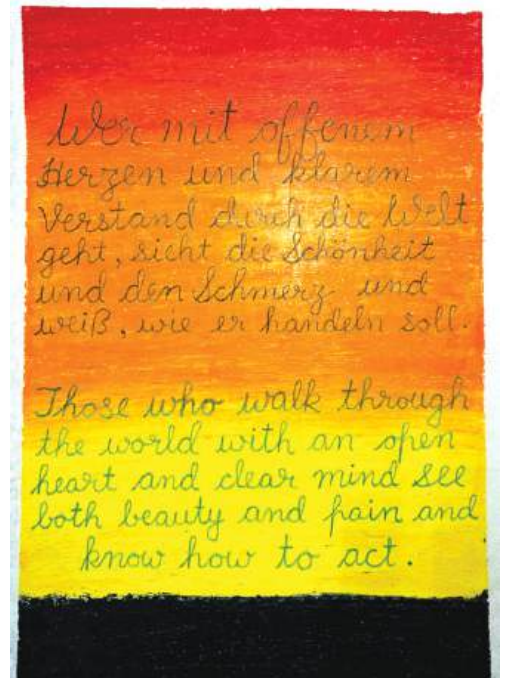 Wer mit offenem
Herzen und klarem
Verstand durch die Welt
geht, sieht die Schönheit
und den Schmerz und
weiß, wie er handeln soll.
Those who walk through
the world with an open
heart and clear mind see
both beauty and pain and
know how to act.